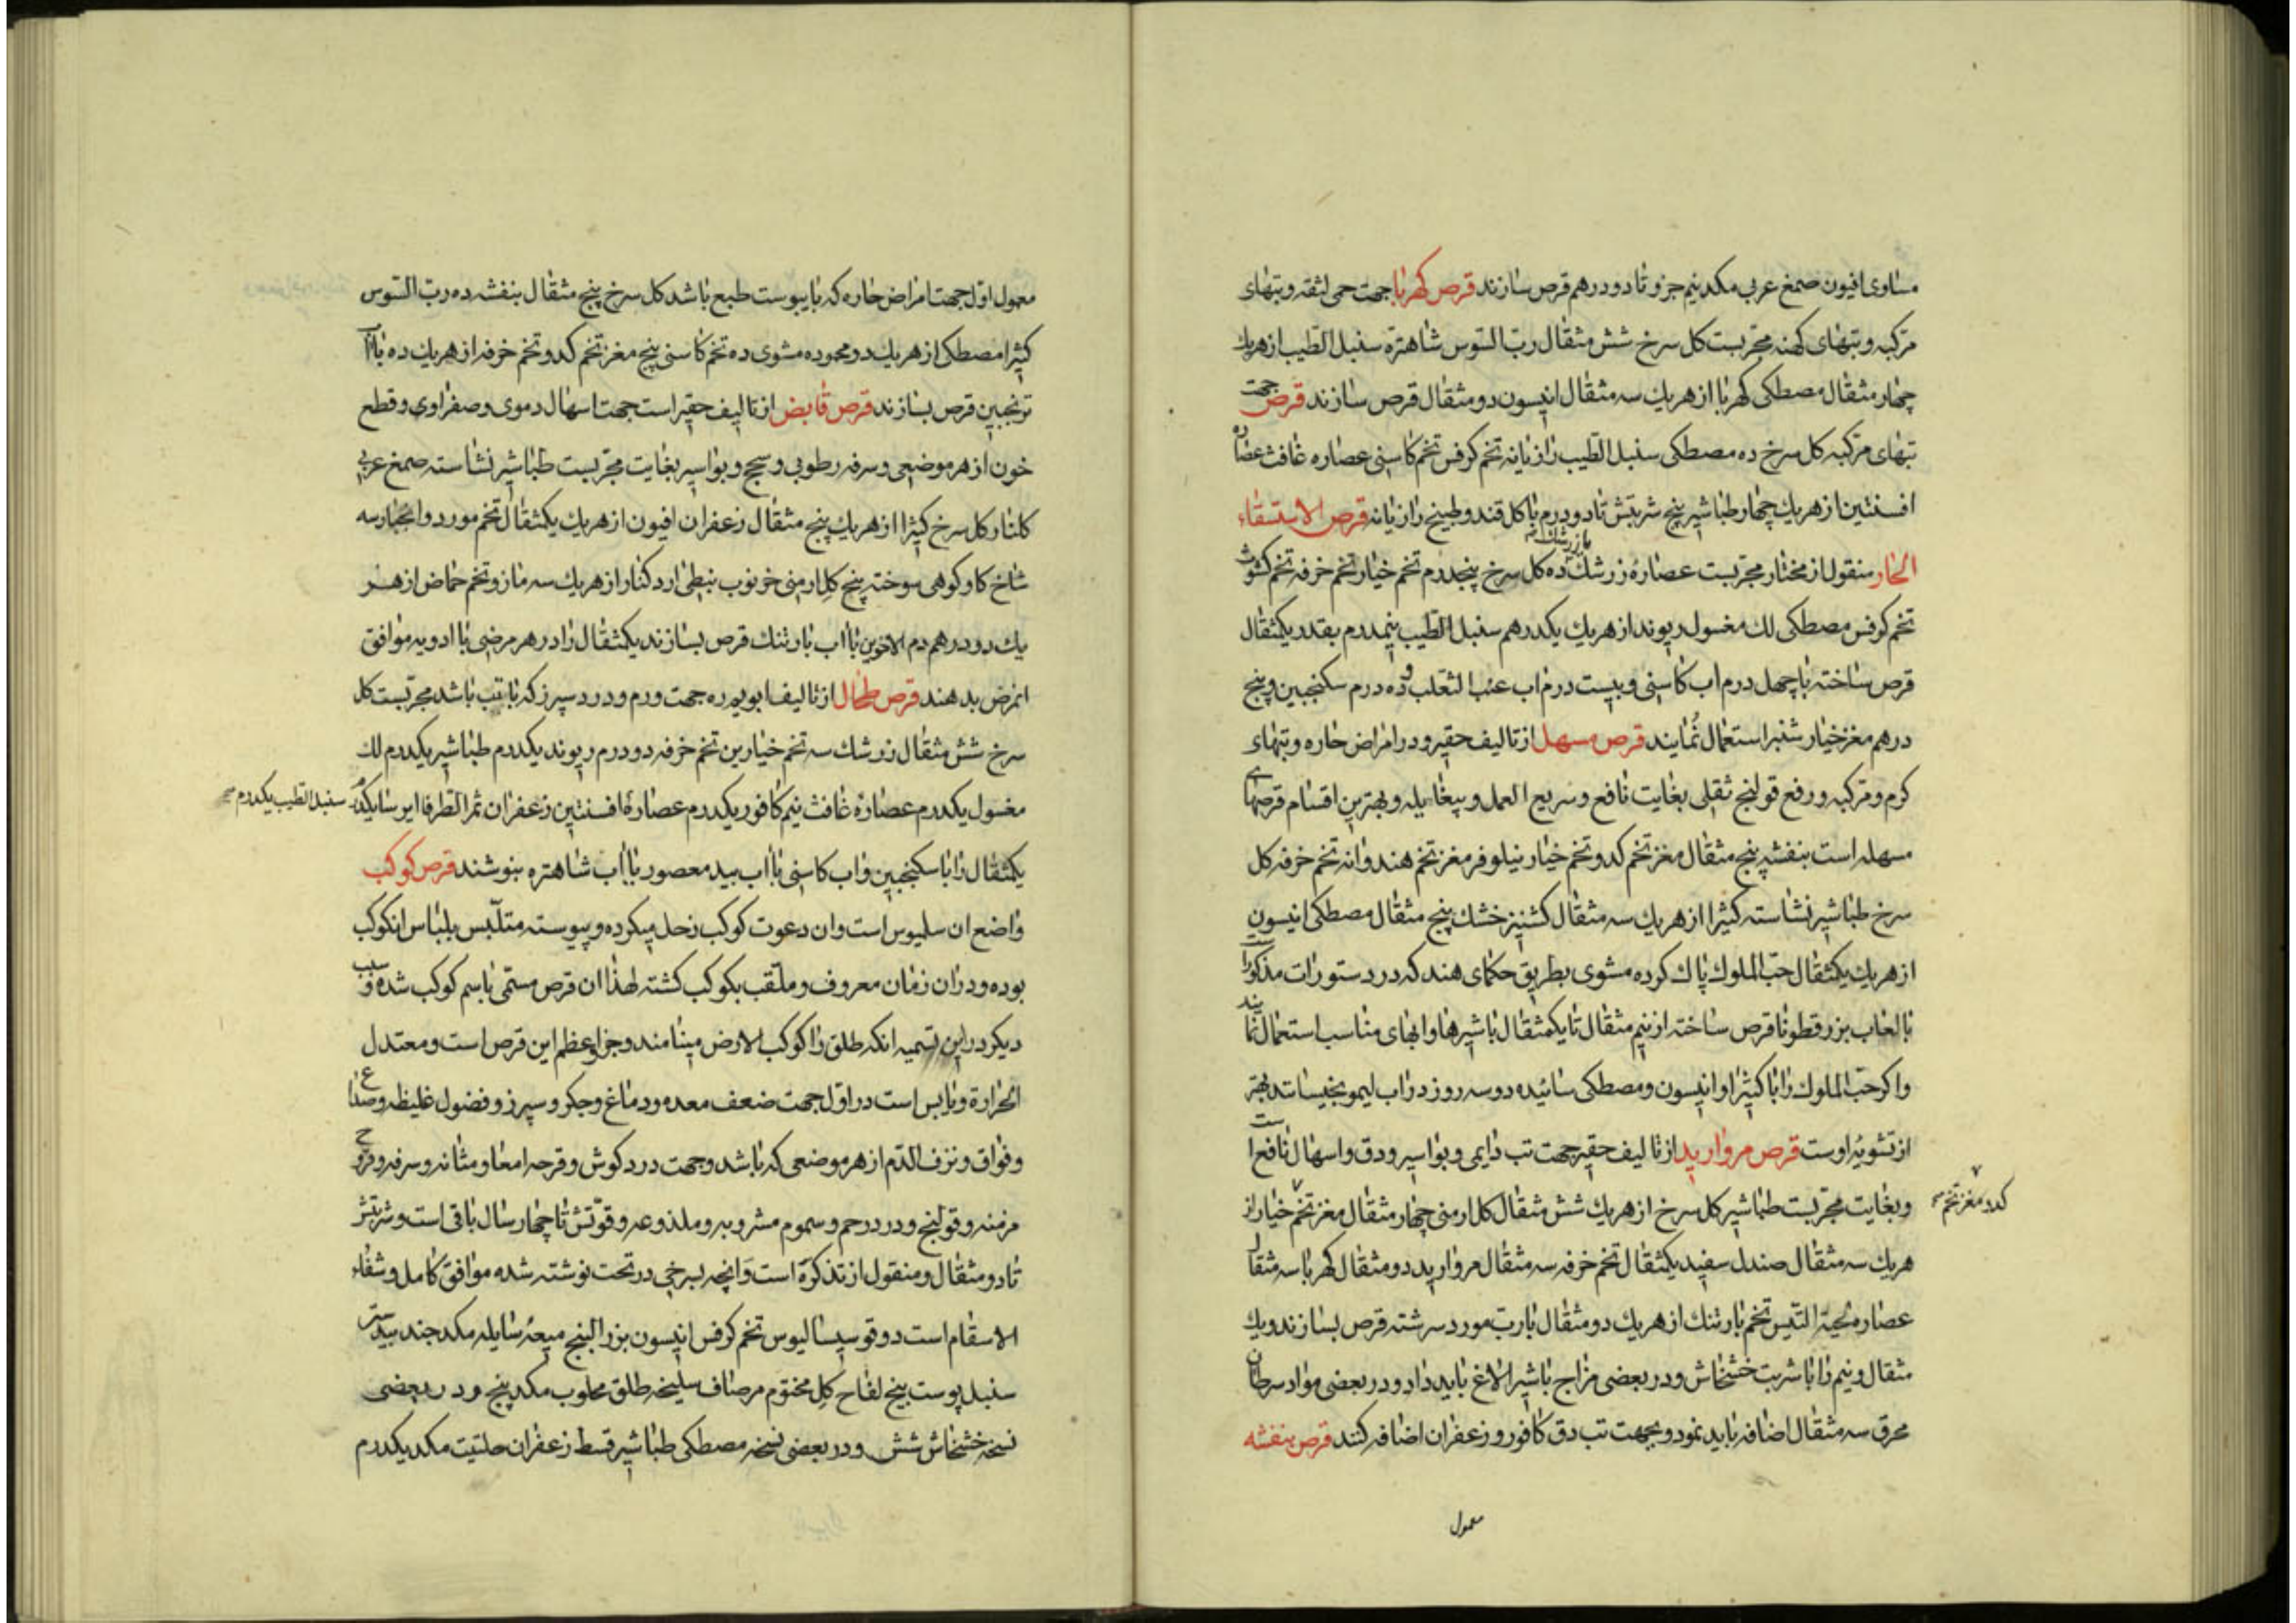 مساوی افیون صمغ عربی مکد نیم جزو تا دو درهم قرص سازند قرص کهربا جهت حمی لثقه و تبهای
مرکبه و تبهای کهنه مجربست کل سرخ شش مثقال رب السوس شاهتره سنبل الطیب از هریك
چهار مثقال مصطکی کهربا از هریك سه مثقال انیسون دو مثقال قرص سازند قرص جهت
تبهای مرکبه کل سرخ ده مصطکی سنبل الطیب رازیانه تخم کرفس تخم کاسنی عصاره غافث عصاره
افسنتین از هریك چهار طباشیر پنج شربتش تا دو درم با کل قند و طبیخ رازیانه قرص الاستسقاء
الحار منقول از مختار مجربست عصارهٔ زرشك ده کل سرخ پنجدرم تخم خیار تخم خرفه تخم کشوث
تخم کرفس مصطکی لك مغسول ریوند از هریك یکدرهم سنبل الطیب نیمدرم بقدر یکمثقال
قرص ساخته با چهل درم اب کاسنی و بیست درم اب عنب الثعلب و ده درم سکنجبین و پنج
درهم مغز خیار شنبر استعمال نمایند قرص مسهل از تالیف حقیر و در امراض حاره و تبهای
کرم و مرکبه و رفع قولنج ثقلی بغایت نافع و سریع العمل و بیغایله و بهترین اقسام قرصهای
مسهله است بنفشه پنج مثقال مغز تخم کدو تخم خیار نیلوفر مغز تخم هندوانه تخم خرفه کل
سرخ طباشیر نشاسته کثیرا از هریك سه مثقال کشنیز خشك پنج مثقال مصطکی انیسون
از هریك یکمثقال حب الملوك پاك کرده مشوی بطریق حکمای هند که در دستورات مذکور است
با لعاب بزرقطونا قرص ساخته از نیم مثقال تا یکمثقال با شیرها و ابهای مناسب استعمال نمایند
و اکر حب الملوك را با کثیرا و انیسون و مصطکی سائیده دو سه روز در اب لیمو بخیسانند بهتر
از تشویهٔ اوست قرص مروارید از تالیف حقیر جهت تب دایمی و بواسیر و دق و اسهال نافع است
و بغایت مجربست طباشیر کل سرخ از هریك شش مثقال کل ارمنی چهار مثقال مغز تخم خیار از
کدو مغز تخم
هریك سه مثقال صندل سفید یکمثقال تخم خرفه سه مثقال مروارید دو مثقال کهربا سه مثقال
عصاره لحیة التیس تخم بارتنك از هریك دو مثقال با رب مورد سرشته قرص بسازند و یك
مثقال و نیم را با شربت خشخاش و در بعضی مزاج با شیر الاغ باید داد و در بعضی مواد سرطان
محرق سه مثقال اضافه باید نمود و بجهت تب دق کافور و زعفران اضافه کنند قرص بنفشه
معمول
معمول اول جهت امراض حاره که با یبوست طبع باشد کل سرخ پنج مثقال بنفشه ده رب السوس
کثیرا مصطکی از هریك دو محموده مشوی ده تخم کاسنی پنج مغز تخم کدو تخم خرفه از هریك ده با اب
ترنجبین قرص بسازند قرص قابض از تالیف حقیر است جهت اسهال دموی و صفراوی و قطع
خون از هر موضعی و سرفه رطوبی و سحج و بواسیر بغایت مجربست طباشیر نشاسته صمغ عربی
کلنار کل سرخ کثیرا از هریك پنج مثقال زعفران افیون از هریك یکمثقال تخم مورد و انجبار سه
شاخ کاو کوهی سوخته پنج کل ارمنی خرنوب نبطی ارد کنار از هریك سه مازو تخم حماض از هر
یك دو درهم دم الاخوین با اب بارتنك قرص بسازند یکمثقال را در هر مرضی با ادویه موافق
انمرض بدهند قرص طحال از تالیف ابویوره جهت ورم و درد سپرز که با تب باشد مجربست کل
سرخ شش مثقال زرشك سه تخم خیارین تخم خرفه دو درم ریوند یکدرم طباشیر یکدرم لك
مغسول یکدرم عصارهٔ غافث نیم کافور یکدرم عصارهٔ افسنتین زعفران ثمر الطرفا ایرسا یکدرم
سنبل الطیب یکدرم
یکمثقال را با سکنجبین و اب کاسنی با اب بید معصور با اب شاهتره بنوشند قرص کوکب
واضع ان سلیوس است و ان دعوت کوکب زحل میکرده و پیوسته متلبس بلباس انکوکب
بوده و در ان زمان معروف و ملقب بکوکب کشته لهذا ان قرص مسمی باسم کوکب شده و سبب
دیکر در این تسمیه انکه طلق را کوکب الارض مینامند و جزو اعظم این قرص است و معتدل
الحرارة و یابس است در اول جهت ضعف معده و دماغ و جکر و سپرز و فضول غلیظه و صداع
و فواق و نزف الدم از هر موضعی که باشد و جهت درد کوش و قرحه امعا و مثانه و سرفه و قروح
مزمنه و قولنج و درد رحم و سموم مشروبه و ملذوعه و قوتش تا چهار سال باقی است و شربتش
تا دو مثقال و منقول از تذکره است و انچه بسرخی در تحت نوشته شده موافق کامل و شفاء
الاسقام است دوقو سیسالیوس تخم کرفس انیسون بزر البنج میعهٔ سایله مکد جند بیدستر
سنبل پوست بیخ لفاح کل مختوم مرصاف سلیخه طلق محلوب مکد پنج و در بعضی
نسخه خشخاش شش و در بعضی نسخه مصطکی طباشیر قسط زعفران حلتیت مکد یکدرم